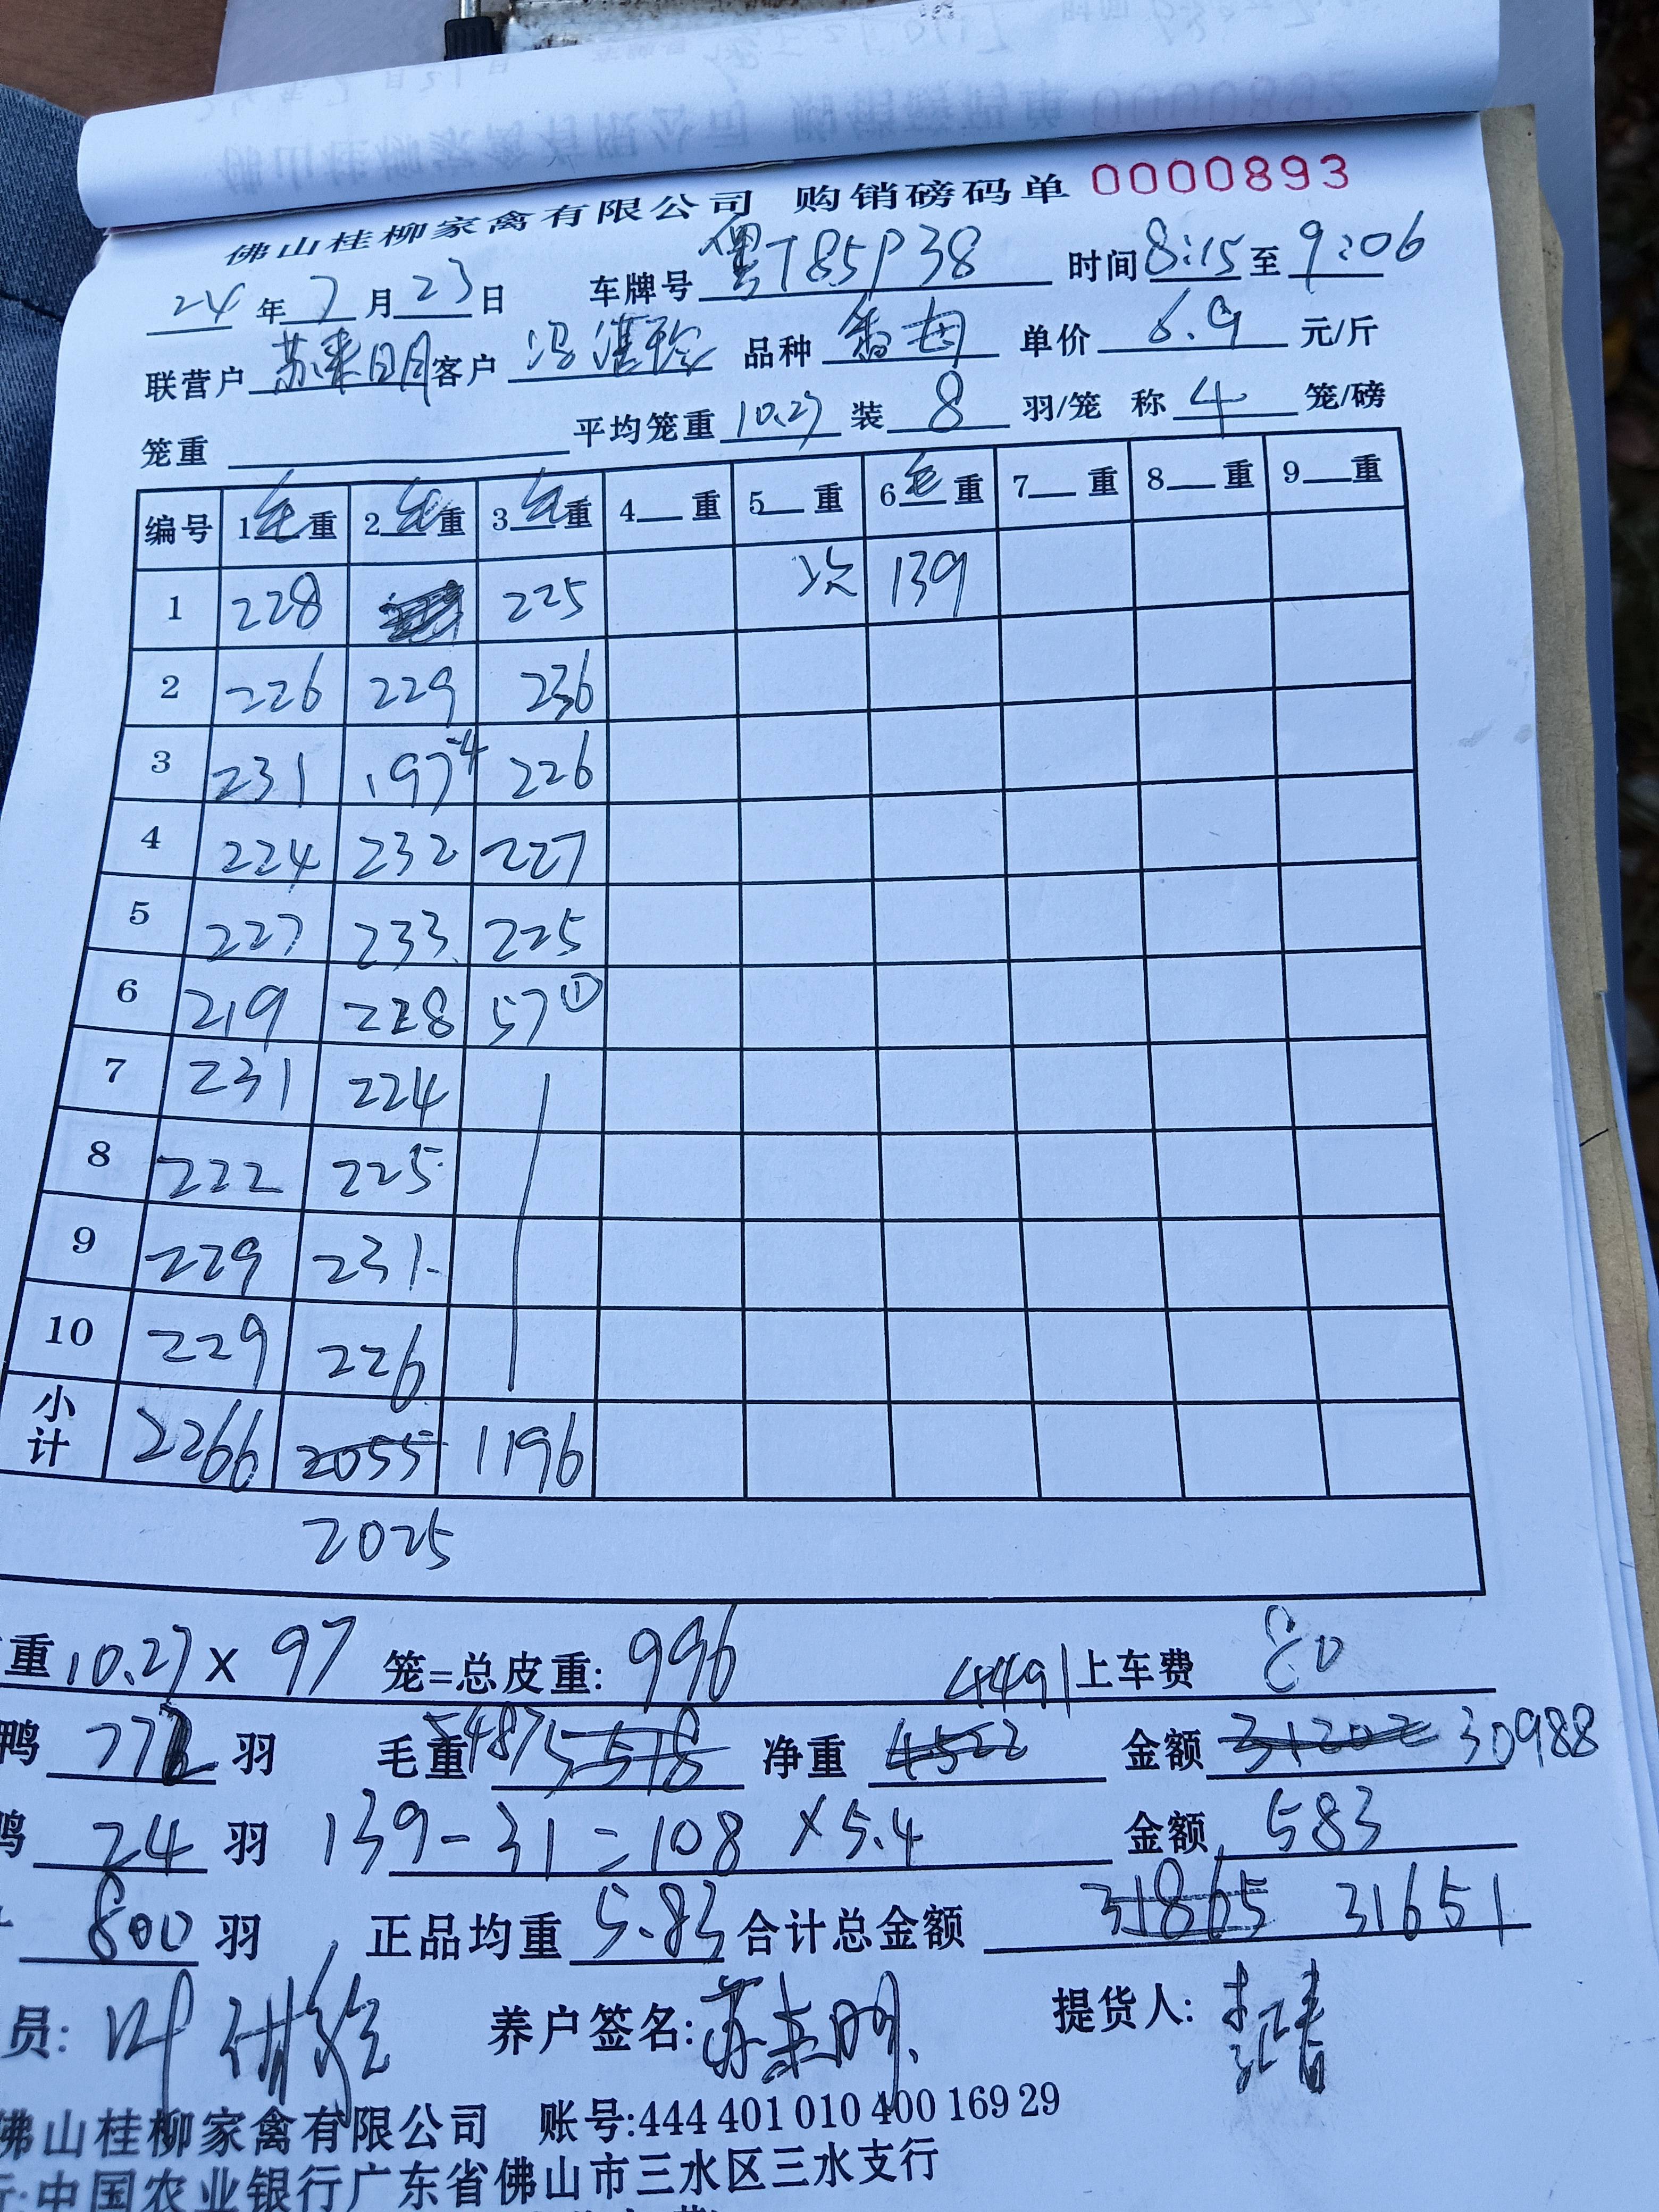 佛山桂柳家禽有限公司 购销磅码单 0000893
24 年 7 月 23 日 车牌号 粤T85P38 时间 8:15 至 9:06
联营户 苏来明 客户 品种 香母 单价 6.9 元/斤
笼重 平均笼重 10.27 装 8 羽/笼 称 4 笼/磅
编号 1毛重 2毛重 3毛重 4 重 5 重 6毛重 7 重 8 重 9 重
1 228 225 次 139
2 226 229 236
3 231 197-4 226
4 224 232 227
5 227 233 225
6 219 228 57①
7 231 224
8 222 225
9 229 231
10 229 226
小计 2266 2055 1196
2025
重 10.27 × 97 笼=总皮重: 996 4491 上车费 80
鸭 772 羽 毛重 5487 5518 净重 4522 金额 31202 30988
鸭 24 羽 139-31=108×5.4 金额 583
800 羽 正品均重 5.83 合计总金额 31865 31651
员: 养户签名: 苏来明 提货人:
佛山桂柳家禽有限公司 账号:444 401 010 400 169 29
行:中国农业银行广东省佛山市三水区三水支行